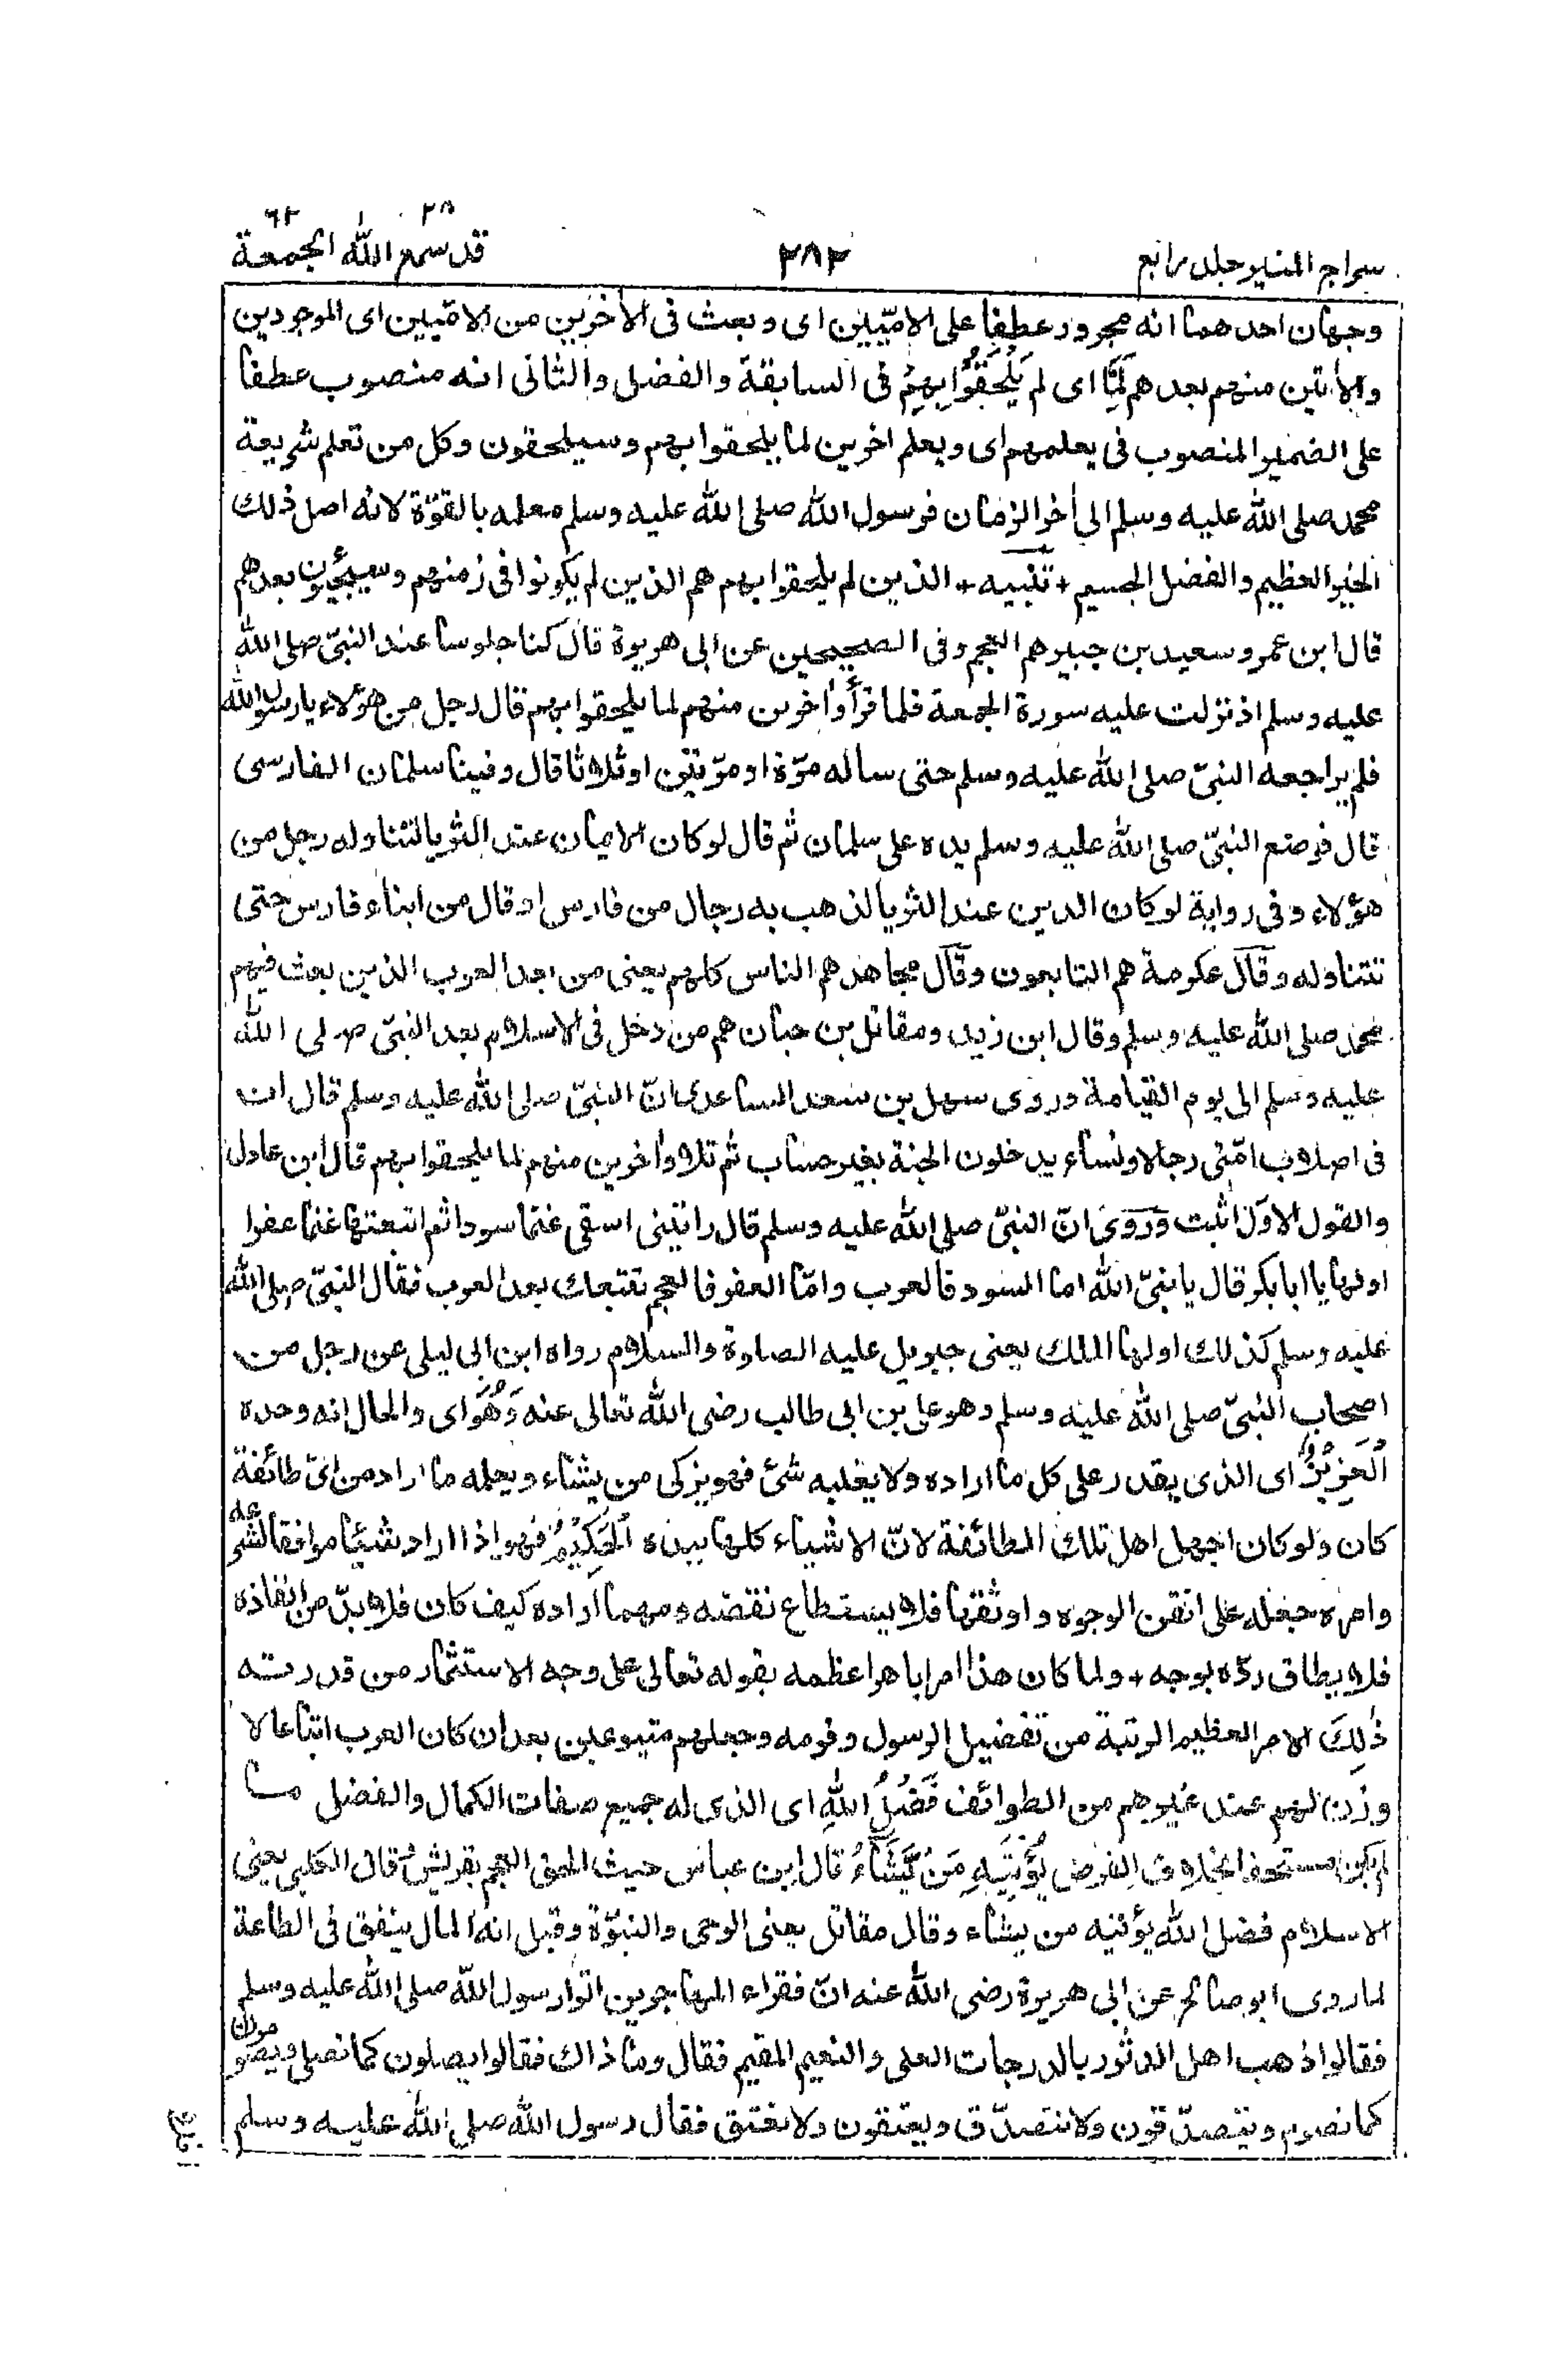 سراج المنير جلد رابع
٢٨٢
٢٨ ٦٢
قد سمع الله الجمعة
وجهان احدهما انه مجرور عطفا على الامّيّين اى وبعث فى الاٰخرين من الامّيّين اى الموجودين
والاٰتين منهم بعدهم لَمَّا اى لم يَلْحَقُوْا بِهِمْ فى السابقة والفضل والثانى انه منصوب عطفا
على الضمير المنصوب فى يعلمهم اى ويعلم اخرين لما يلحقوا بهم وسيلحقون وكل من تعلم شريعة
محمد صلى الله عليه وسلم الى اٰخر الزمان فرسول الله صلى الله عليه وسلم معلمه بالقوّة لانه اصل ذلك
الخير العظيم والفضل الجسيم + تنبيه + الذين لم يلحقوا بهم هم الذين لم يكونوا فى زمنهم وسيجيؤن بعدهم
قال ابن عمر وسعيد بن جبير هم العجم وفى الصحيحين عن ابى هريرة قال كنا جلوسا عند النبىّ صلى الله
عليه وسلم اذ نزلت عليه سورة الجمعة فلما قرأ واٰخرين منهم لما يلحقوا بهم قال رجل من هؤلاء يا رسول الله
فلم يراجعه النبىّ صلى الله عليه وسلم حتى ساله مرّة او مرّتين او ثلاثا قال وفينا سلمان الفارسى
قال فوضع النبىّ صلى الله عليه وسلم يده على سلمان ثم قال لو كان الايمان عند الثريا لتناوله رجل من
هؤلاء وفى رواية لو كان الدين عند الثريا لذهب به رجال من فارس او قال من ابناء فارس حتى
تتناوله وقال عكرمة هم التابعون وقال مجاهد هم الناس كلهم يعنى من بعد العرب الذين بعث فيهم
محمد صلى الله عليه وسلم وقال ابن زيد ومقاتل بن حبان هم من دخل فى الاسلام بعد النبىّ صلى الله
عليه وسلم الى يوم القيامة وروى سهل بن سعد الساعدى انّ النبىّ صلى الله عليه وسلم قال ان
فى اصلاب امّتى رجالا ونساء يدخلون الجنة بغير حساب ثم تلا واٰخرين منهم لما يلحقوا بهم قال ابن عادل
والقول الاوّل اثبت وروى انّ النبىّ صلى الله عليه وسلم قال راتينى اسقى غنما سودا ثم اتبعتها غنما عفرا
اولها يا ابا بكر قال يا نبىّ الله اما السود فالعرب وامّا العفر فالعجم تتبعك بعد العرب فقال النبىّ صلى الله
عليه وسلم كذلك اولها الملك يعنى جبريل عليه الصلوة والسلام رواه ابن ابى ليلى عن رجل من
اصحاب النبىّ صلى الله عليه وسلم وهو على بن ابى طالب رضى الله تعالى عنه وَهُوَ اى والحال انه وحده
الْعَزِيْزُ اى الذى يقدر على كل ما اراده ولا يغلبه شئ فهو يزكى من يشاء ويعلمه ما اراد من اىّ طائفة
كان ولو كان اجهل اهل تلك الطائفة لانّ الاشياء كلها بيده الْحَكِيْمُ فهو اذا اراد شيئا موافقا لشرعه
وامره جعله على اتقن الوجوه واوثقها فلا يستطاع نقضه ومهما اراده كيف كان فلا بدّ من انفاذه
فلا يطاق ردّه بوجه + ولما كان هذا امرا باهرا عظمه بقوله تعالى على وجه الاستثمار من قدرته
ذٰلِكَ الامر العظيم الرتبة من تفضيل الرسول وقومه وجعلهم متبوعين بعد ان كان العرب اتباعا لا
وزن لهم عند غيرهم من الطوائف فَضْلُ اللّٰهِ اى الذى له جميع صفات الكمال والفضل ما
لم يكن مستحقا بخلاف الفرض يُؤْتِيْهِ مَنْ يَّشَآءُ قال ابن عباس حيث الحق العجم بقريش قال الكلبى يعنى
الاسلام فضل الله يؤتيه من يشاء وقال مقاتل يعنى الوحى والنبوّة وقيل انه المال ينفق فى الطاعة
لما روى ابو صالح عن ابى هريرة رضى الله عنه انّ فقراء المهاجرين اتوا رسول الله صلى الله عليه وسلم
فقالوا ذهب اهل الدثور بالدرجات العلى والنعيم المقيم فقال وما ذاك فقالوا يصلون كما نصلى ويصومون
كما نصوم ويتصدّقون ولا نتصدّق ويعتقون ولا نعتق فقال رسول الله صلى الله عليه وسلم